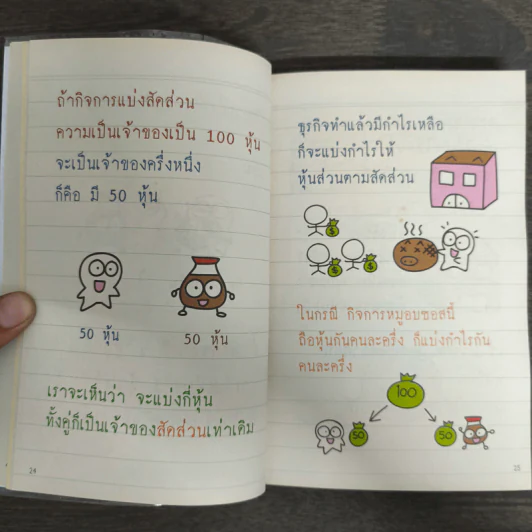 ถ้ากิจการแบ่งสัดส่วน
ความเป็นเจ้าของเป็น 100 หุ้น
จะเป็นเจ้าของครึ่งหนึ่ง
ก็คือ มี 50 หุ้น
50 หุ้น
50 หุ้น
เราจะเห็นว่า จะแบ่งกี่หุ้น
ทั้งคู่ก็เป็นเจ้าของสัดส่วนเท่าเดิม
24
ธุรกิจทำแล้วมีกำไรเหลือ
ก็จะแบ่งกำไรให้
หุ้นส่วนตามสัดส่วน
$
$ $
ในกรณี กิจการหมูอบซอสนี้
ถือหุ้นกันคนละครึ่ง ก็แบ่งกำไรกัน
คนละครึ่ง
100
50
50
25